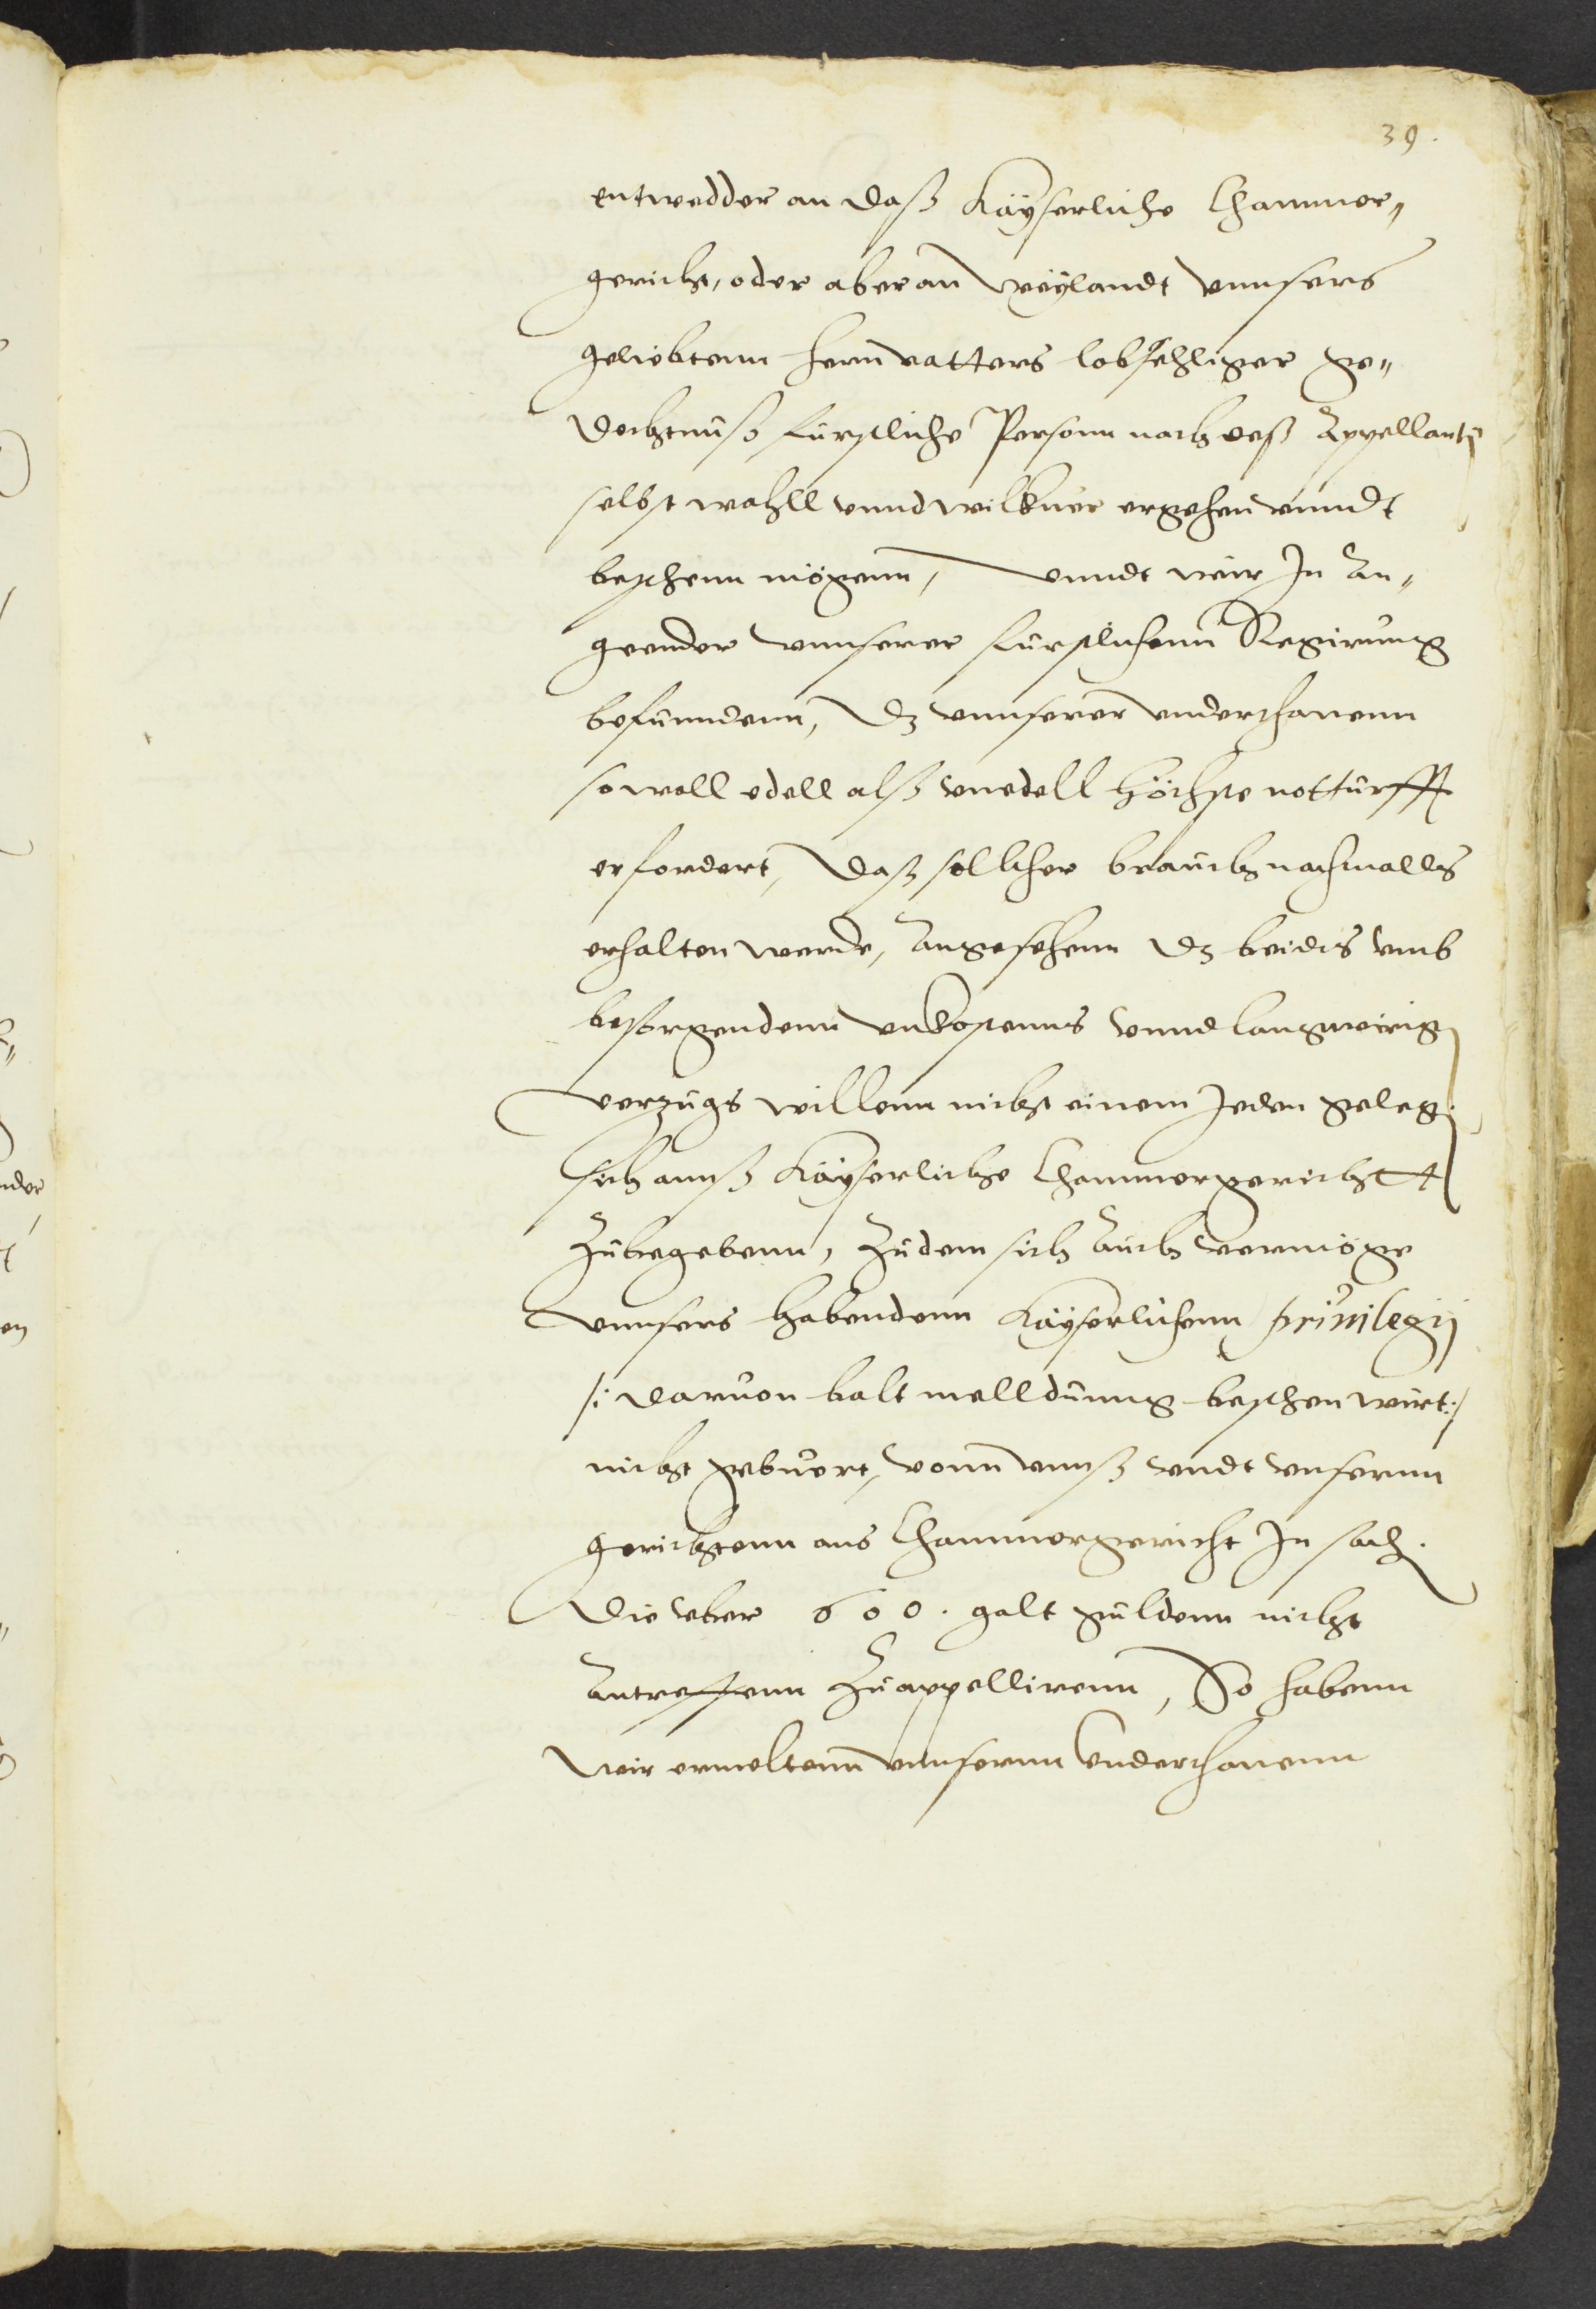 39.
entwedder an daß Kaÿserliche Chammer„
gericht, oder aber an weÿlandt vnnsers
geliebtenn hern vatters lobsehliger ge„
dechtnuß fürstliche Personn nach deß Appellanten
selbst wahll vnnd wilkuer ergehen vnndt
beschenn mögenn, vnndt wir In An„
geender vnnserer fürstlichenn Regirung
befunndenn, dz vnnserer vnderthanenn
so woll edell alß vnedell höchste notturfft
erfordert, daß sollicher brauch nachmalls
erhalten werde, Angesehenn dz beidis vmb
besorgendenn vnkostenns vnnd langwirig
verzugs willenn nicht einem Jeden geleg.
sich annß Kaÿserliche Chammergerichtt
zubegebenn, zudem sich Auch vermöge
vnnsers habendenn Kaÿserlichenn privilegij
/: daruon balt melldunng beschen wirt :/
nicht gebuert, vonn vnnß vndt vnsernn
gerichtenn ans Chammergericht In sach.
die vber 600. galt guldenn nicht
Antreffenn zuappellirenn, So habenn
wir ermeltenn vnnsernn vnderthanenn